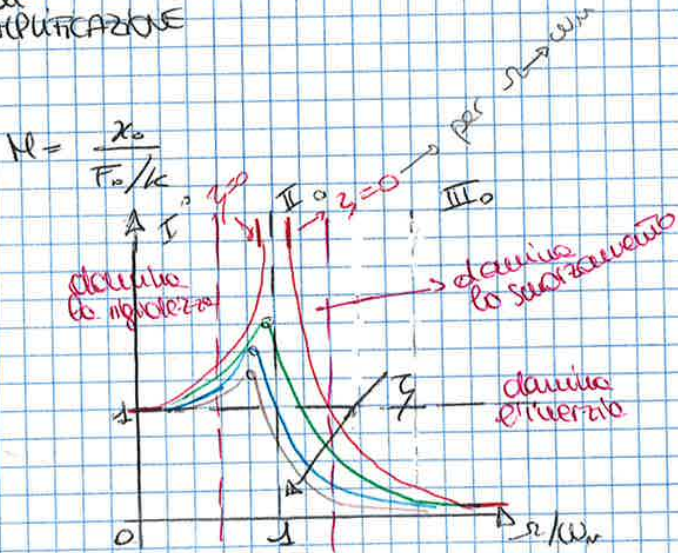 AMPLIFICAZIONE
M = x₀ / F₀/k
per Ω → ωₙ
I°
ζ=0
II°
ζ=0
III°
domina
la rigidezza
domina
lo smorzamento
ζ
domina
l'inerzia
1
0
1
Ω/ωₙ